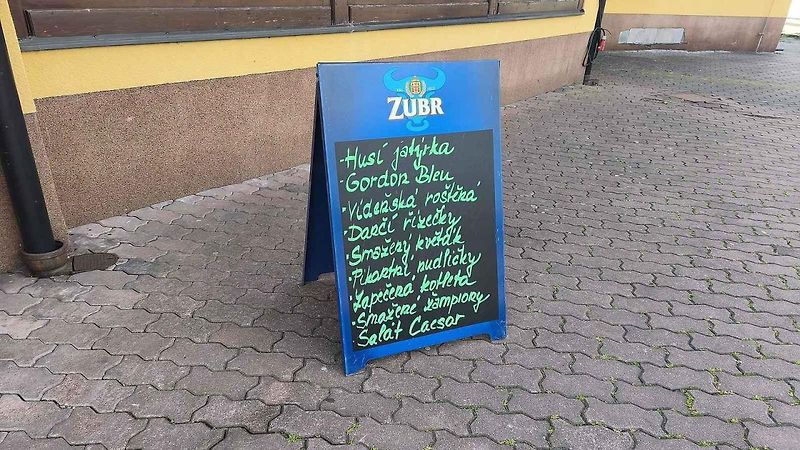 ZUBR
-Husí jatýrka
-Gordon Bleu
-Vídeňská roštěná
-Dančí řízečky
-Smažený květák
-Pikantní nudličky
-Zapečená kotleta
-Smažené žampiony
-Salát Caesar